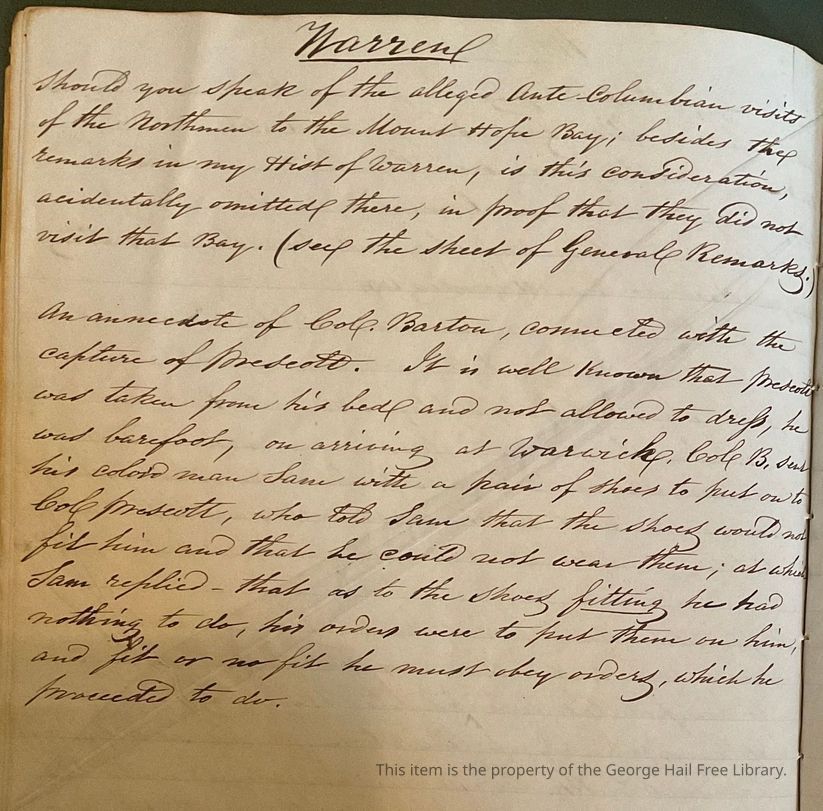 Warren
Should you speak of the alleged Ante-Columbian visits
of the Northmen to the Mount Hope Bay; besides the
remarks in my Hist of Warren, is this consideration,
acidentally omitted there, in proof that they did not
visit that Bay. (see the sheet of General Remarks.)
An annecdote of Col. Barton, connected with the
capture of Prescott. It is well known that Prescott
was taken from his bed and not allowed to dress, he
was barefoot, on arriving at Warwick. Col B. sent
his colord man Sam with a pair of shoes to put on to
Col Prescott, who told Sam that the shoes would not
fit him and that he could not wear them; at which
Sam replied - that as to the shoes fitting he had
nothing to do, his orders were to put them on him,
and fit or no fit he must obey orders, which he
proceeded to do.
This item is the property of the George Hail Free Library.